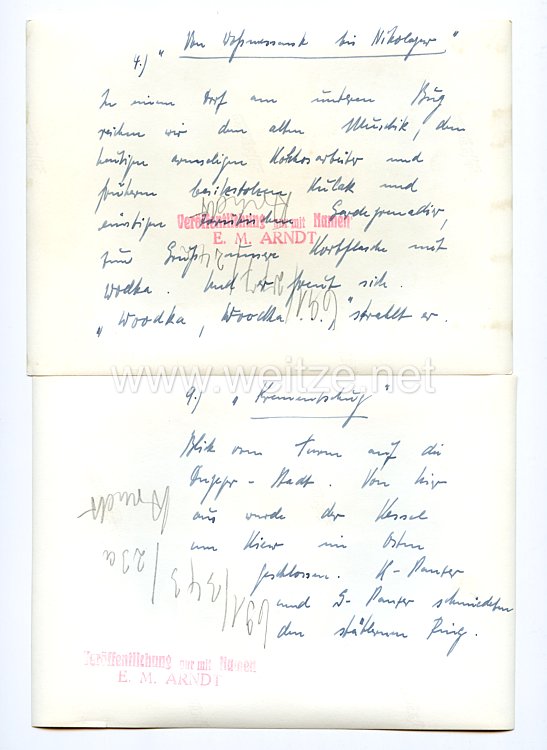 4.) "Von Wosnessensk bis Nikolajew"
In einem Dorf am unteren Bug
reichen wir dem alten Muschik, dem
heutigen armseligen Kolchosarbeiter und
früheren besitzstolzen Kulak und
einstigen Gardegrenadier,
Veröffentlichung nur mit Namen
E. M. ARNDT
zum Gruß unsere Korbflasche mit
Wodka. Und er freut sich.
"Woodka, Woodka..." strahlt er.
www.weitze.net
9.) "Krementschug"
Blick vom Turm auf die
Dnjepr-Stadt. Von hier
aus wurde der Kessel
um Kiew im Osten
geschlossen. K-Panzer
und G-Panzer schmiedeten
den stählernen Ring.
Arndt
691/343/23a
Veröffentlichung nur mit Namen
E. M. ARNDT